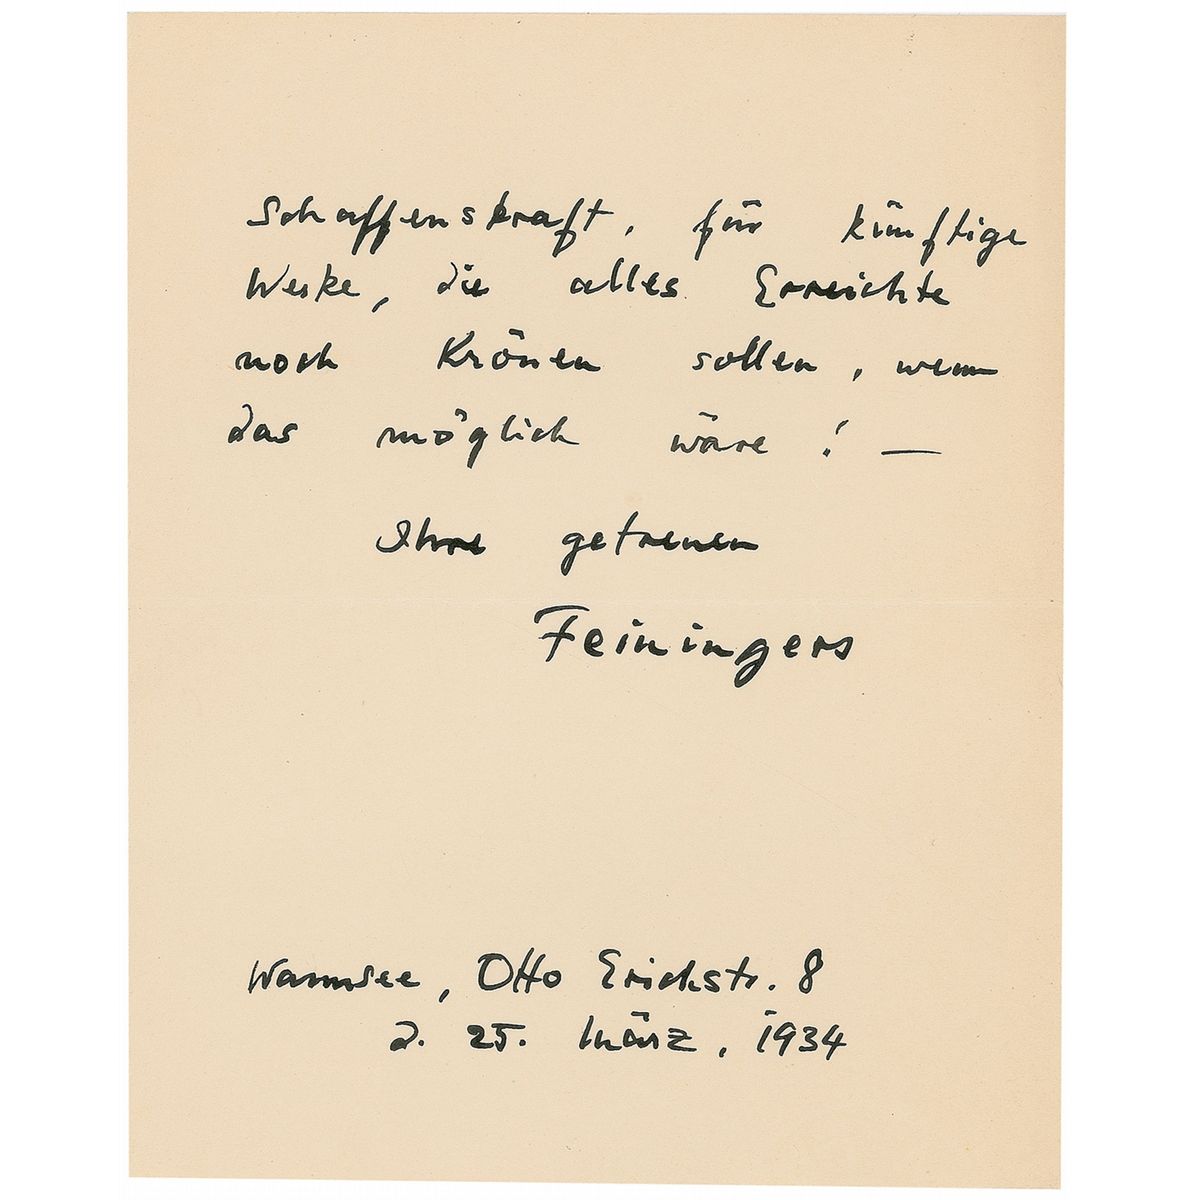 Schaffenskraft, für künftige
Werke, die alles Erreichte
noch Krönen sollen, wenn
das möglich wäre! —
Ihre getreuen
Feiningers
Wannsee, Otto Erichstr. 8
d. 25. März, 1934